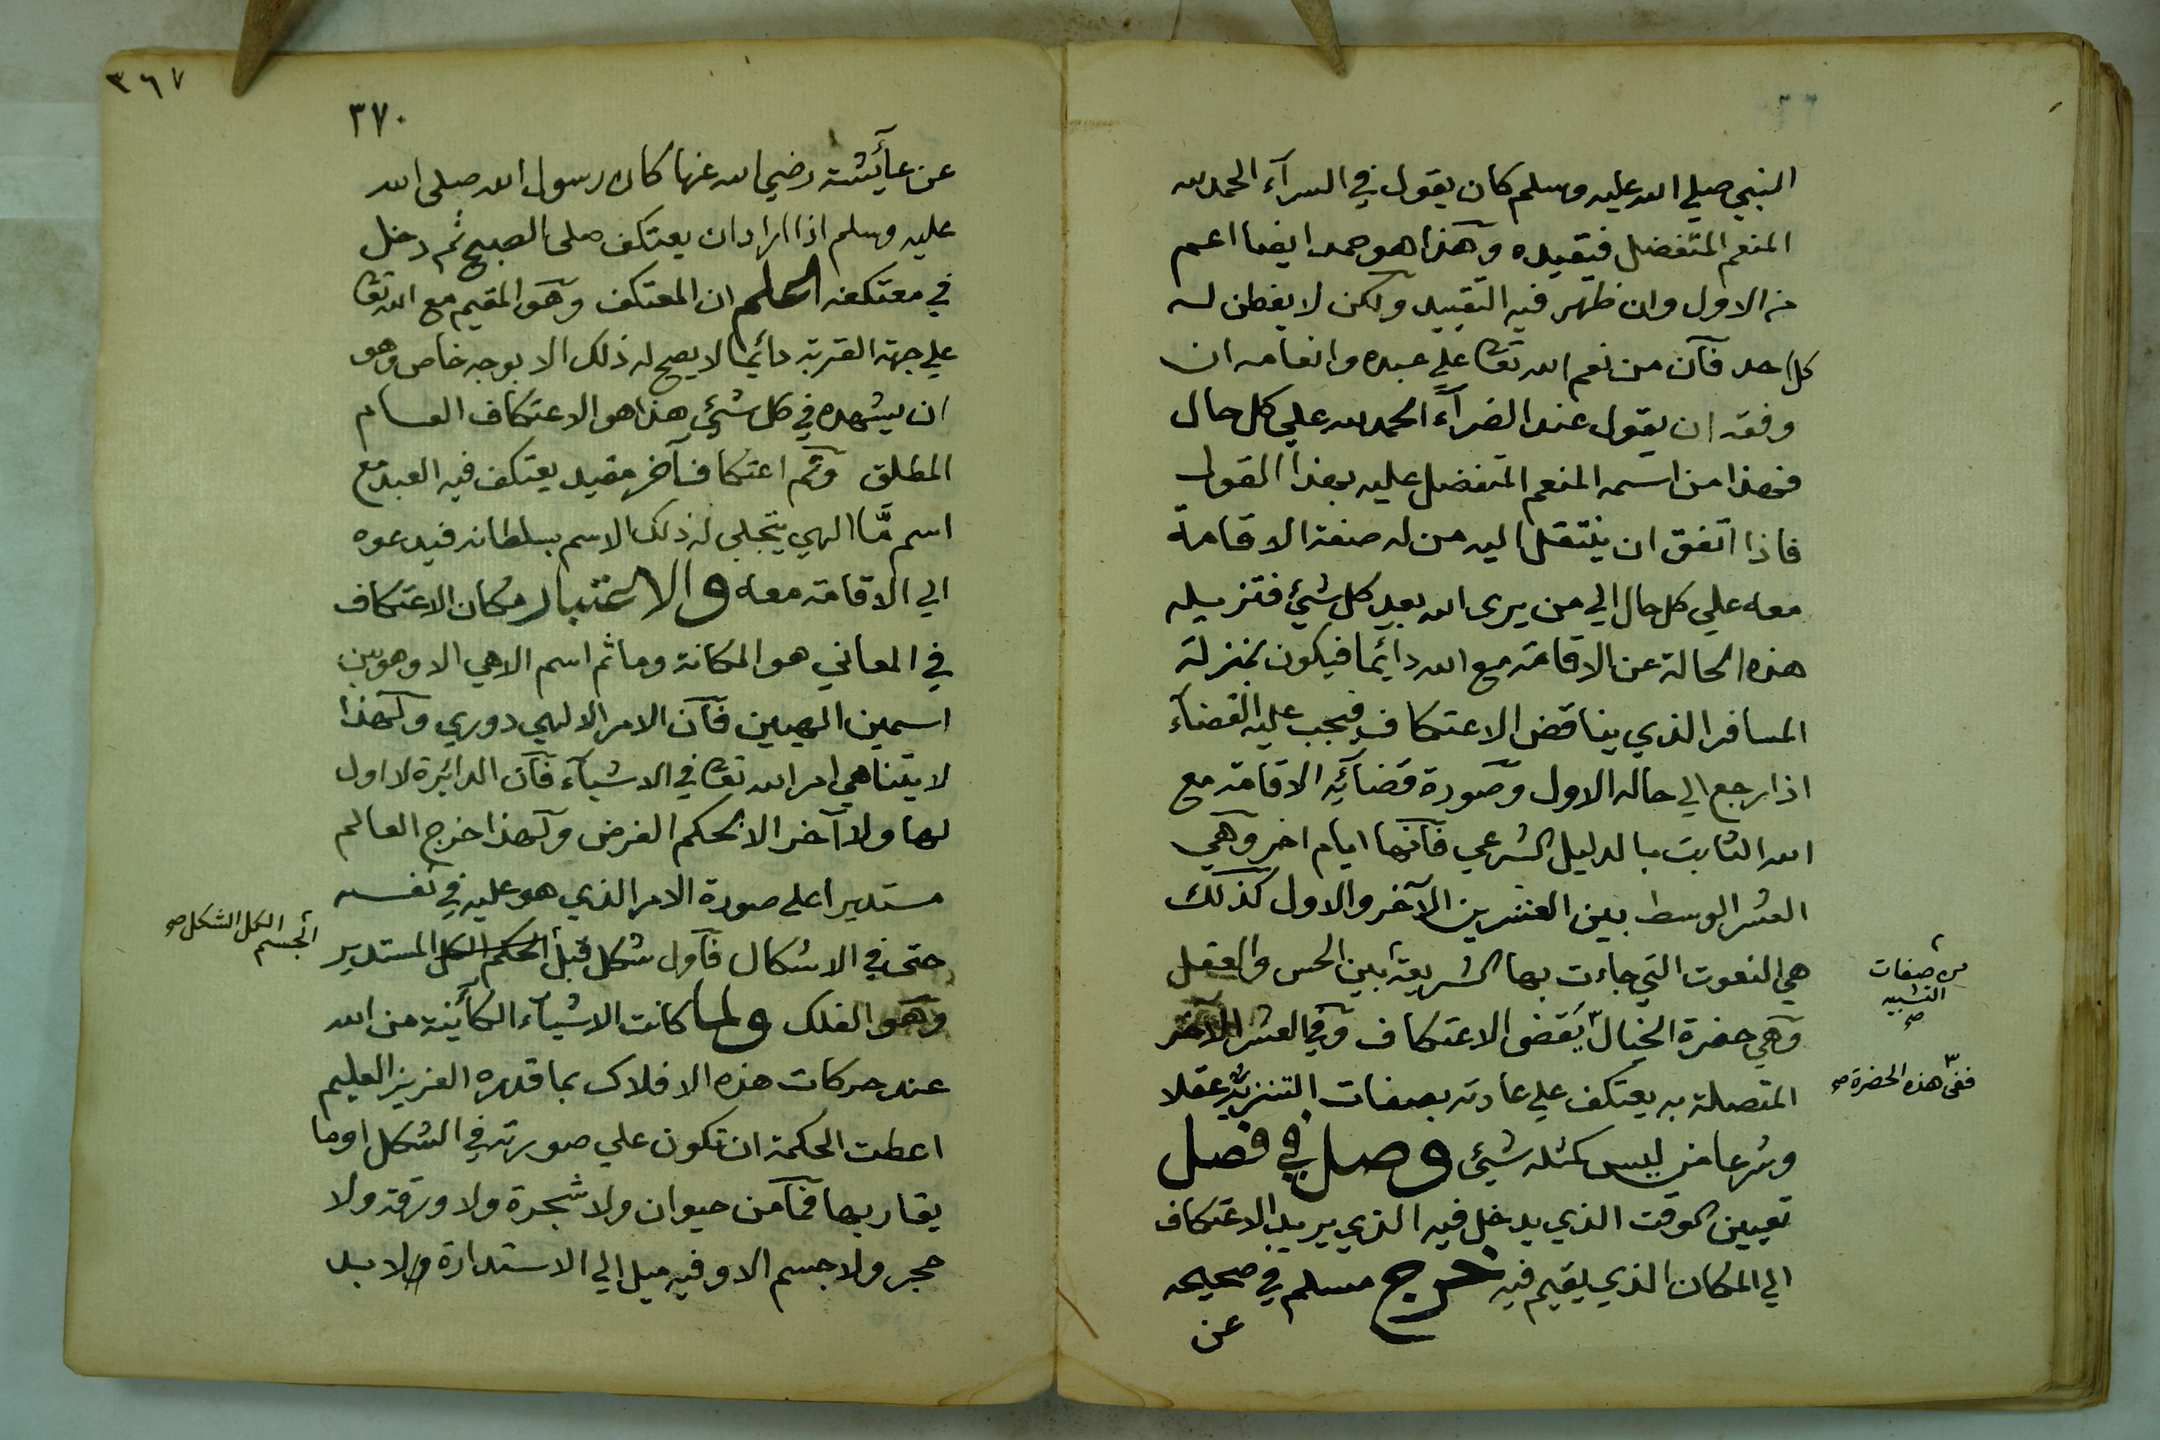 النبي صلي الله عليه وسلم كان يقول في السرآء الحمد لله
المنعم المتفضل فيقيده وهذا هو حمد ايضا اعم
من الاول وان ظهر فيه التقييد ولكن لا يفطن له
كل احد فآن من نعم الله تعا علي عبده وانعامه ان
وفقه ان يقول عند الضرآء الحمد لله علي كل حال
فهذا من اسمه المنعم المتفضل عليه بهذا القول
فاذا اتفق ان ينتقل اليه من له صفة الاقامة
معه علي كل حال الي من يري الله بعيد كل شيئ فتزيله
هذه الحالة عن الاقامة مع الله دائما فيكون بمنزلة
المسافر الذي يناقض الاعتكاف فيجب عليه القضآء
اذا رجع الي حاله الاول وصورة قضآئه الاقامة مع
الله الثابت بالدليل الشرعي فآنها ايام اخر وهي
العشر الوسط بين العشرين الآخر والاول كذلك
هي النعوت التي جاءت بها الشريعة بين الحس والعقل
من صفات
التشبيه
صح
وهي حضرة الخيال يقضي الاعتكاف وفي العشر الآخر
ففي هذه الحضرة صح
المتصلة به يعتكف علي عادته بصفات التنزيه عقلا
وشرعا من ليس كمثله شيئ وصل في فصل
تعيين الوقت الذي يدخل فيه الذي يريد الاعتكاف
الي المكان الذي يقيم فيه خرج مسلم في صحيحه
عن
٣٦٧
٣٧٠
عن عآئشة رضي الله عنها كان رسول الله صلى الله
عليه وسلم اذا اراد ان يعتكف صلى الصبح ثم دخل
في معتكفه اعلم ان المعتكف وهو المقيم مع الله تعا
علي جهة القربة دائما لا يصح له ذلك الا بوجه خاص وهو
ان يشهده في كل شيئ هذا هو الاعتكاف العام
المطلق وثم اعتكاف آخر مقيد يعتكف فيه العبد مع
اسم مّا الهي يتجلي له ذلك الاسم بسلطانه فيدعوه
الي الاقامة معه والاعتبار مكان الاعتكاف
في المعاني هو المكانة وما ثم اسم الاهي الا وهو بين
اسمين الهيين فآن الامر الالهي دوري ولهذا
لا يتناهي امر الله تعا في الاشيآء فآن الدائرة لا اول
لها ولا آخر الا بحكم الفرض ولهذا خرج العالم
مستديرا على صورة الامر الذي هو عليه في نفسه
حتى في الاشكال فآول شكل قبل الحكم الكل المستدير
الجسم الكل الشكل صح
وهو الفلك ولما كانت الاشيآء الكآئنة من الله
عند حركات هذه الافلاك بما قدره العزيز العليم
اعطت الحكمة ان تكون علي صورته في الشكل او ما
يقاربها فمآ من حيوان ولا شجرة ولا ورقة ولا
حجر ولا جسم الا وفيه ميل الي الاستدارة ولا بد